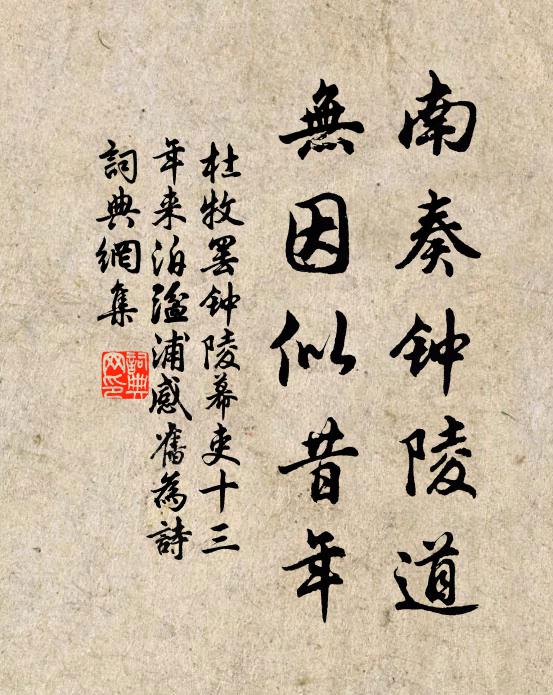 南奏钟陵道
無因似昔年
杜牧罢钟陵幕吏十三
年来泊湓浦感舊為詩
詞典網集
詞典網印